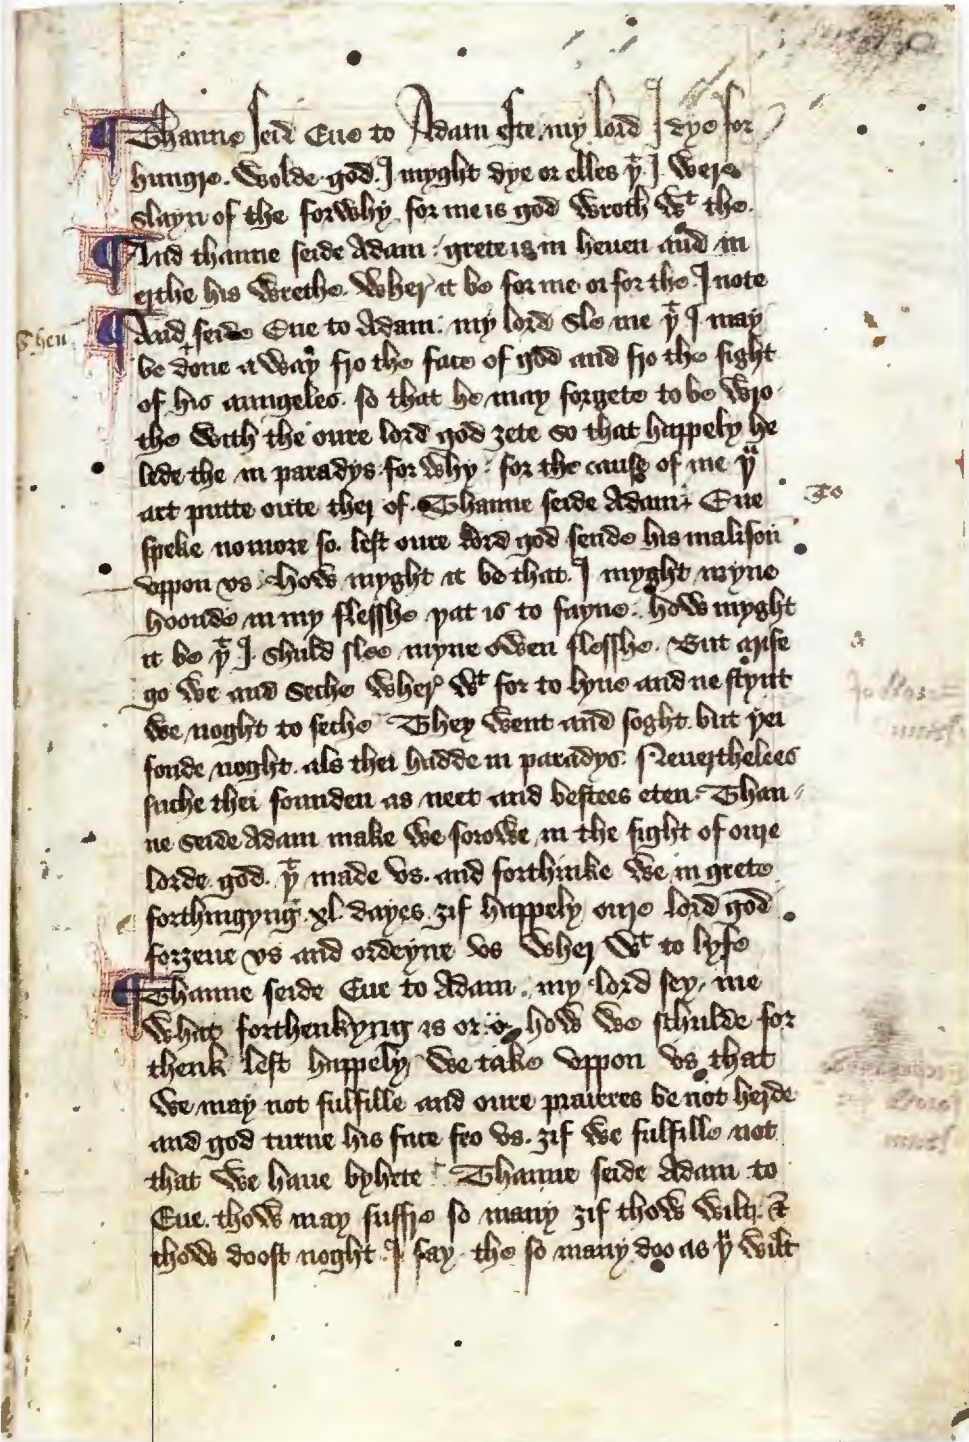 Thanne seid Eue to Adam my lord I dye for
hungre. wolde god I myght dye or elles þt I were
slayn of the forwhy for me is god wroth wt the.
And thanne seide Adam grete is in heuen and in
erthe his wrethe. wher it be for me or for the I note
And seide Eue to Adam: my lord sle me þt I may
then
be done a way fro the face of god and fro the sight
of his aungeles. so that he may forgete to be wro
the with the oure lord god ȝete so that happely he
lede the in paradys for why: for the cause of me þu
art putte oute ther of. Thanne seide Adam Eue
To
speke no more so. lest oure lord god sende his malison
vppon vs. how myght it be that. I myght myne
hoonde in my flesshe þat is to sayne. how myght
it be þt I shuld slee myne owen flesshe. But arise
go we and seche wher wt for to lyue and ne stynt
we noght to seche They went and soght. but þei
fonde noght. als thei hadde in paradys. Neuerthelees
suche thei founden as neet and bestees eten. Than
ne seide Adam make we sorowe in the sight of oure
lorde god. þt made vs. and forthinke we in grete
forthingyng. xl. dayes. ȝif happely oure lord god
forȝeue vs and ordeyne vs wher wt to lyfe
Thanne seide Eue to Adam. my lord sey me
what forthenkyng is or how we schulde for
thenk lest happely we take vppon vs that
we may not fulfille and oure praieres be not herde
and god turne his face fro vs. ȝif we fulfille not
that we haue byhete Thanne seide Adam to
Eue. thow may suffre so many ȝif thow wilt. &
thow doost noght I say the so many doo as þu wilt